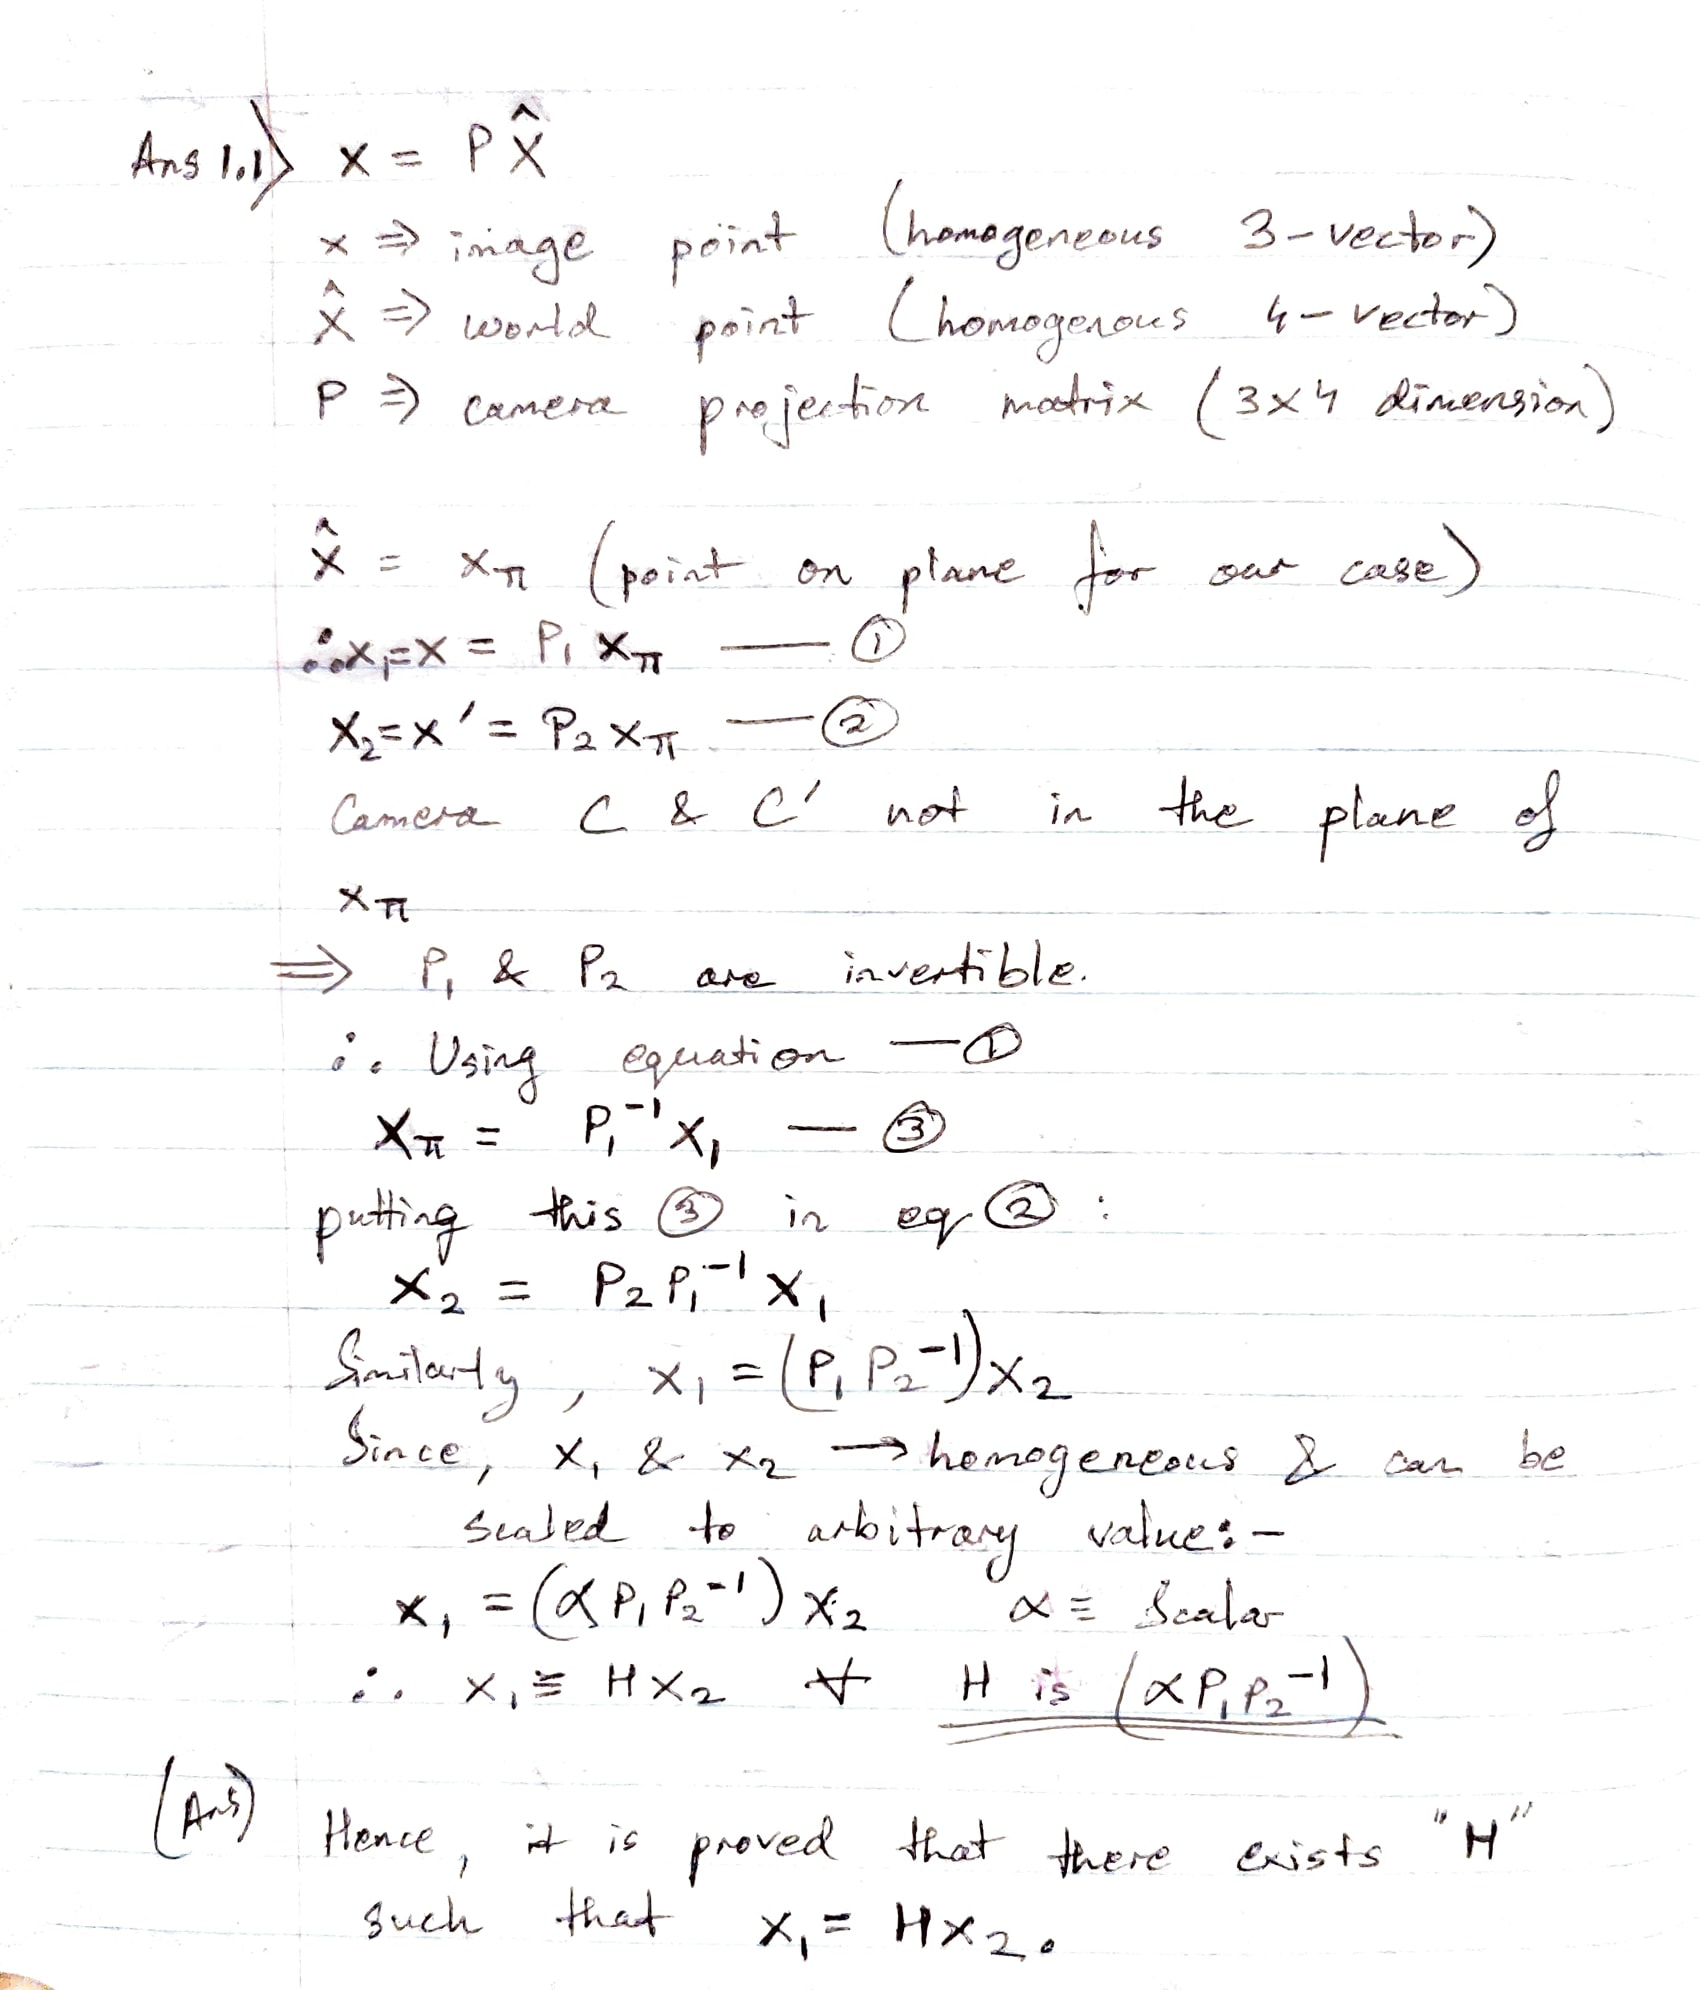 Ans 1.1) x = P X̂
x ⇒ image point (homogeneous 3-vector)
X̂ ⇒ world point (homogenous 4-vector)
P ⇒ camera projection matrix (3x4 dimension)
X̂ = xπ (point on plane for our case)
∴ x₁=x = P₁ xπ — ①
x₂=x' = P₂ xπ — ②
Camera C & C' not in the plane of
xπ
⇒ P₁ & P₂ are invertible.
∴ Using equation — ①
xπ = P₁⁻¹x₁ — ③
putting this ③ in eq ② :
x₂ = P₂P₁⁻¹x₁
Similarly, x₁ = (P₁P₂⁻¹)x₂
Since, x₁ & x₂ → homogeneous & can be
scaled to arbitrary value:-
x₁ = (αP₁P₂⁻¹) x₂ α ≡ Scalar
∴ x₁ ≡ Hx₂ ∀ H is (αP₁P₂⁻¹)
(Ans) Hence, it is proved that there exists "H"
such that x₁ = Hx₂.